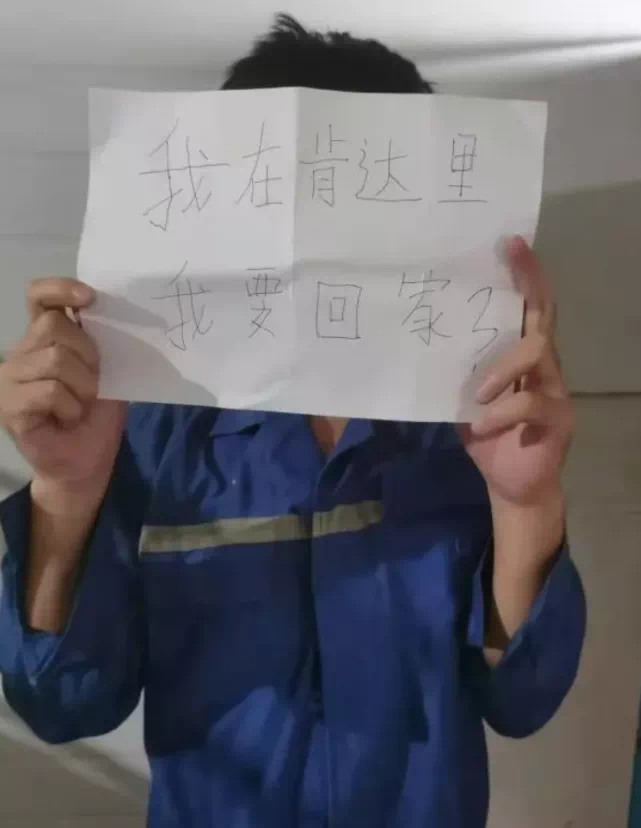 我在肯达里
我要回家了